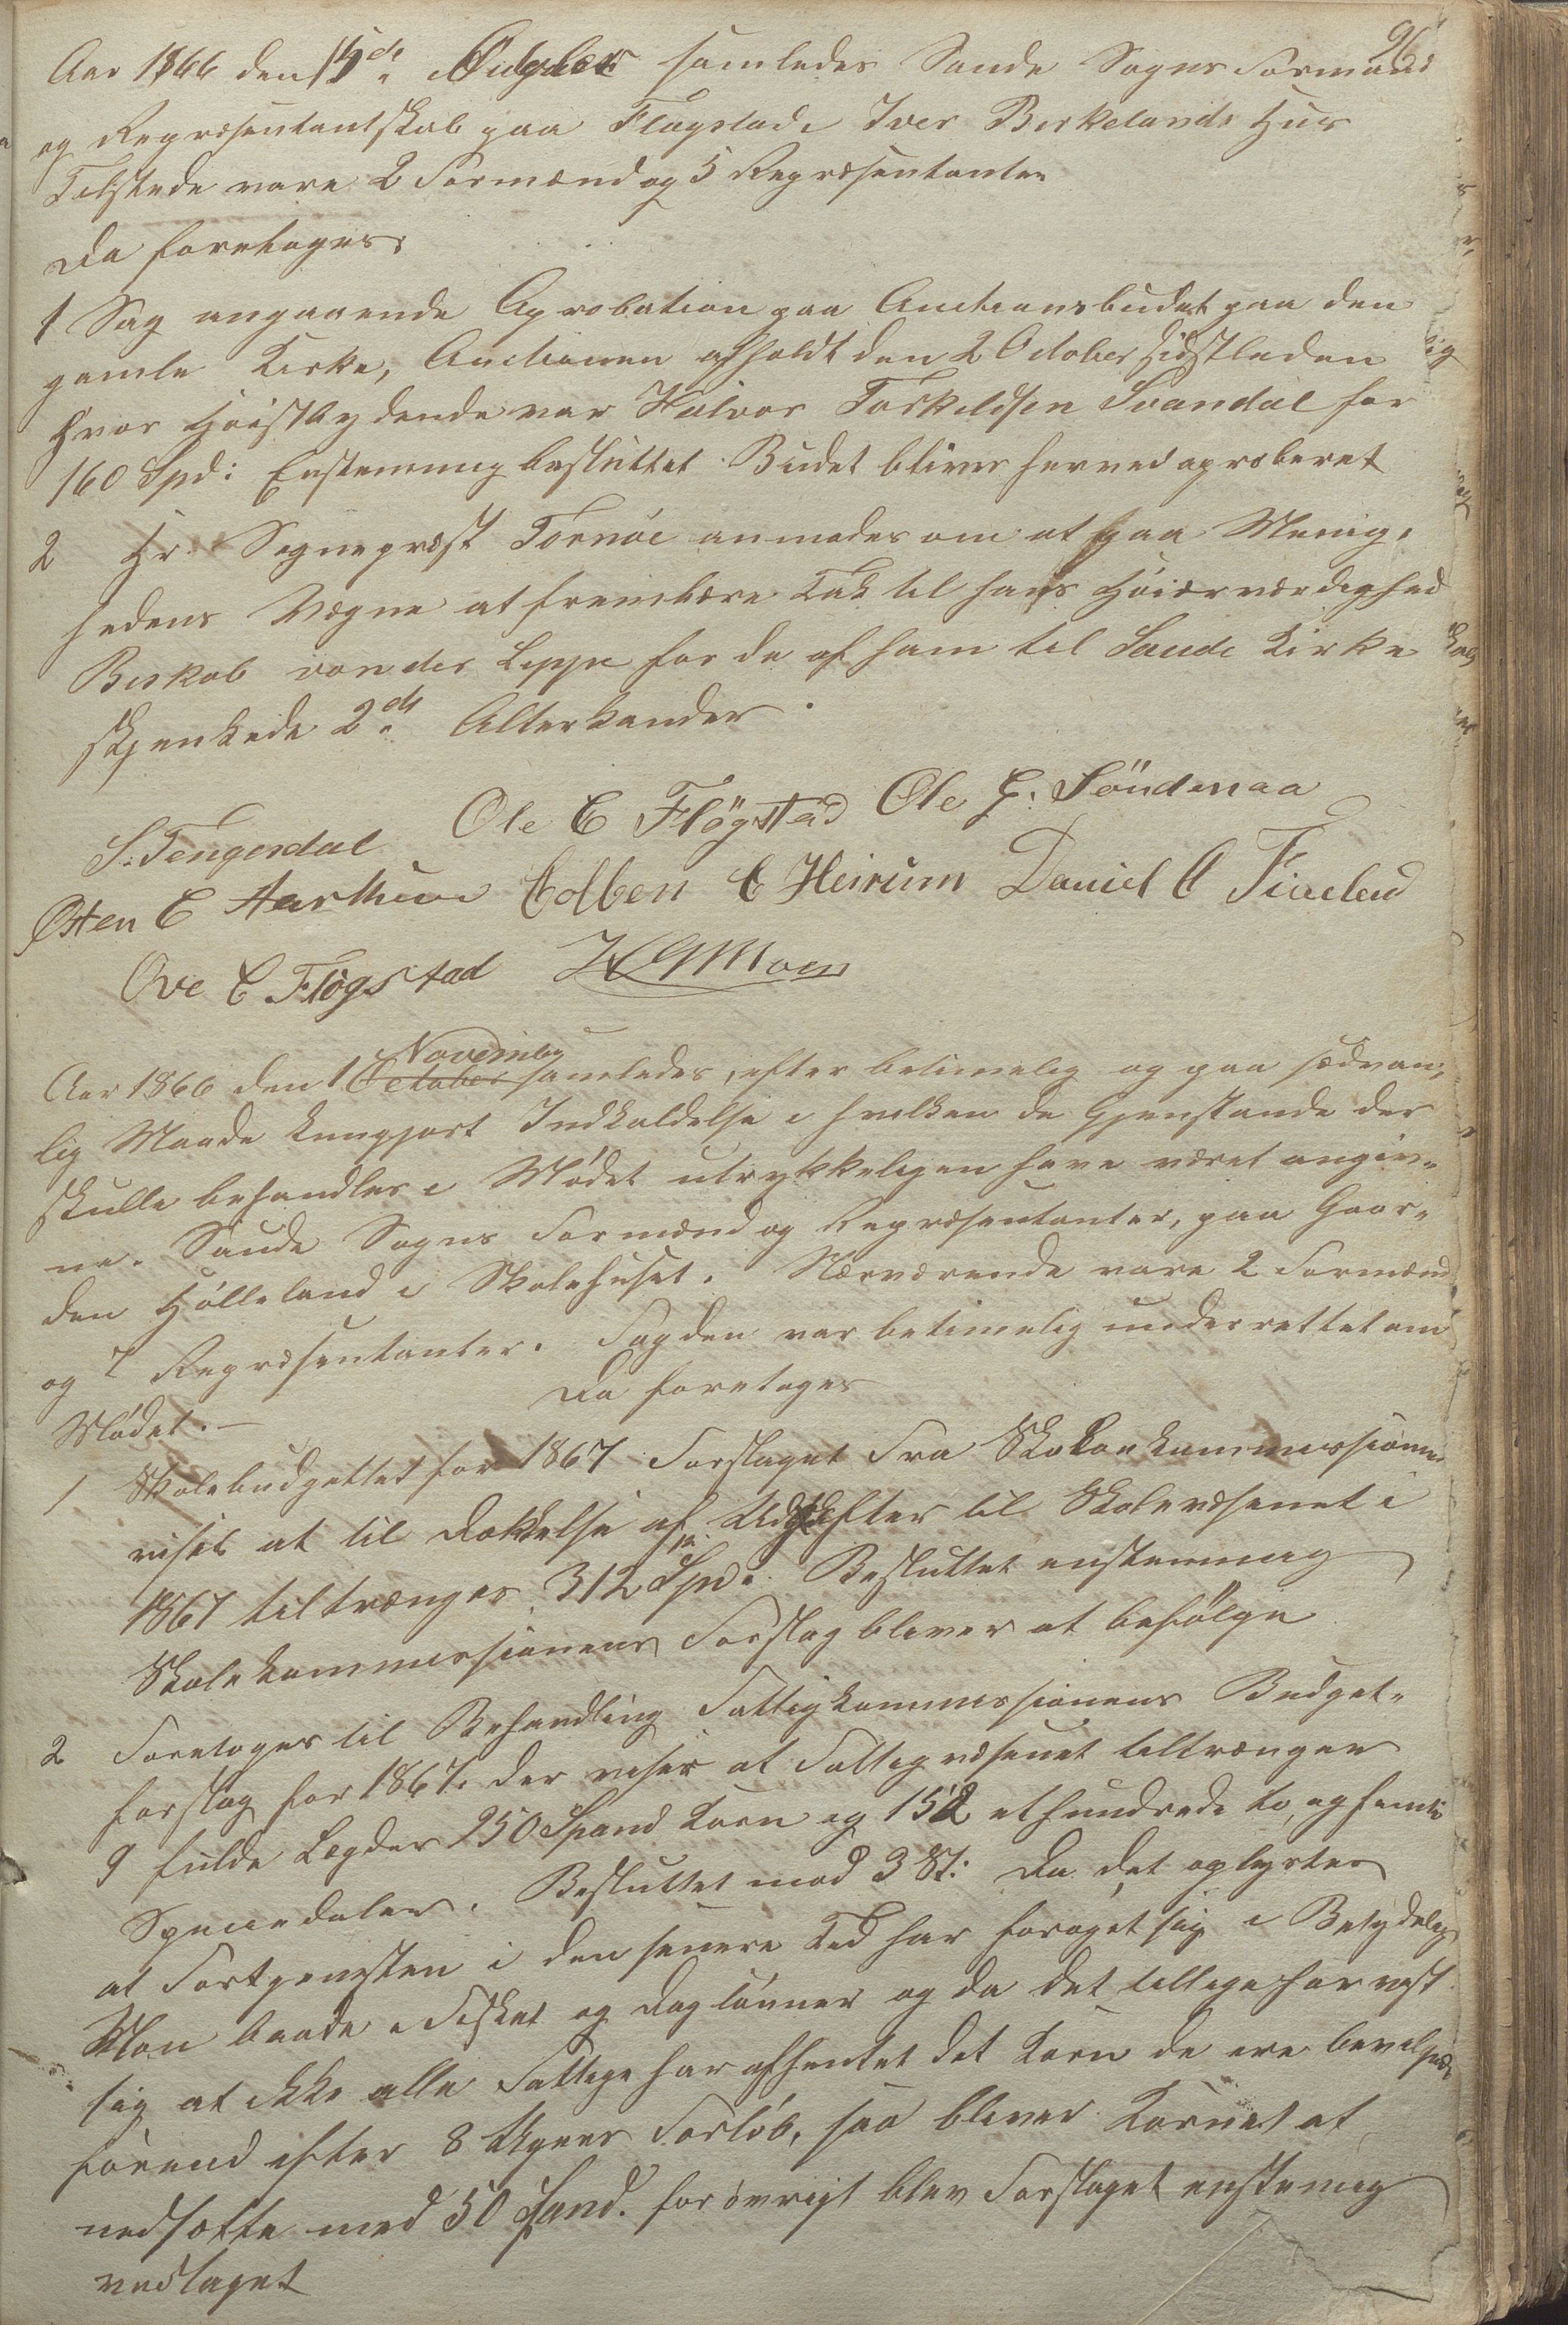 96
Aar 1866 den 15de October samledes Sande Sogns Formænd
og Repræsentantskab paa Flogstad i Iver Birkelands Huus
Tilstede vare 2 Formænd og 5 Repræsentanter
Da foretoges:
1 Sag angaaende Aprobation paa Auctionsbudet paa den
gamle Kirke, Auctionen afholdt den 2 October sidstleden
hvor Høistbydende var Halvor Torkildsen Svandal for
160 Spd: Enstemmig besluttet. Budet bliver herved aproberet
2 Hr. Sognepræst Tornöe anmodes om at paa Menig-
hedens Vegne at frembære Tak til hans Høiærværdighed
Biskob von der Lippe for de af ham til Saude Kirke
skjenkede 2de Alterkander.
S. Tengesdal Ole E Flögstad Ole G. Söndenaa
Østen E Aarhuus Edben E Heirum Daniel O Fivelland
Ove E Flögstad HGMMoen
Aar 1866 den 1 October November samledes, efter betimelig og paa sædvan-
lig Maade kungjort Indkaldelse i hvilken de Gjenstande der
skulle behandles i Mødet utrykkeligen have været angiv-
ne. Saude Sogns Formænd og Repræsentanter, paa Gaar-
den Hølleland i Skolehuset. Nærværende vare 2 Formænd
og 7 Repræsentanter. Fogden var betimelig underrettet om
Mødet. — Da foretoges
1 Skolebudgettet for 1867 Forslaget fra Skolekommissionen
viser at til Dækkelse af Udgifter til Skolevæsenet i
1867 tiltrænges 312 Spd. Besluttet enstemmig
Skolekommissionens Forslag bliver at befølge
2 Foretoges til Behandling Fattigkommissionens Budget-
forslag for 1867. der viser at Fattigvæsenet tiltrænger
9 fulde Lægder 250 Spand Korn og 152 ethundrede to og femti
Speciedaler. Besluttet mod 3 St: Da det oplystes
at Fortjenesten i den senere Tid har forøget sig i Betydelig
Mon baade i Fisket og Daglønner og da det tillige har vist
sig at ikke alle Fattige har afhentet det Korn de ere bevilget
førend efter 8 Ugers Forløb, saa bliver Kornet at
nedsætte med 50 Spand. forøvrigt blev Forslaget enstemmig
vedtaget